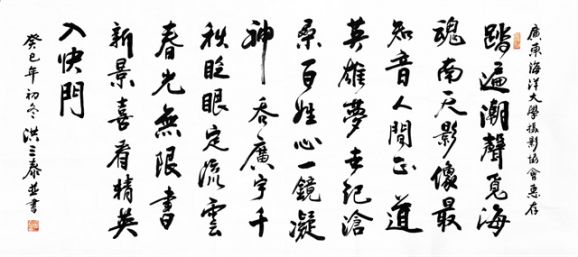 廣東海洋大學攝影協會惠存
踏遍潮聲覓海
魂南天影像最
知音人間正道
英雄夢世紀滄
桑百姓心一鏡凝
神吞廣宇千
秋眨眼定流雲
春光無限書
新景喜看精英
入快門
癸巳年初冬 洪三泰並書